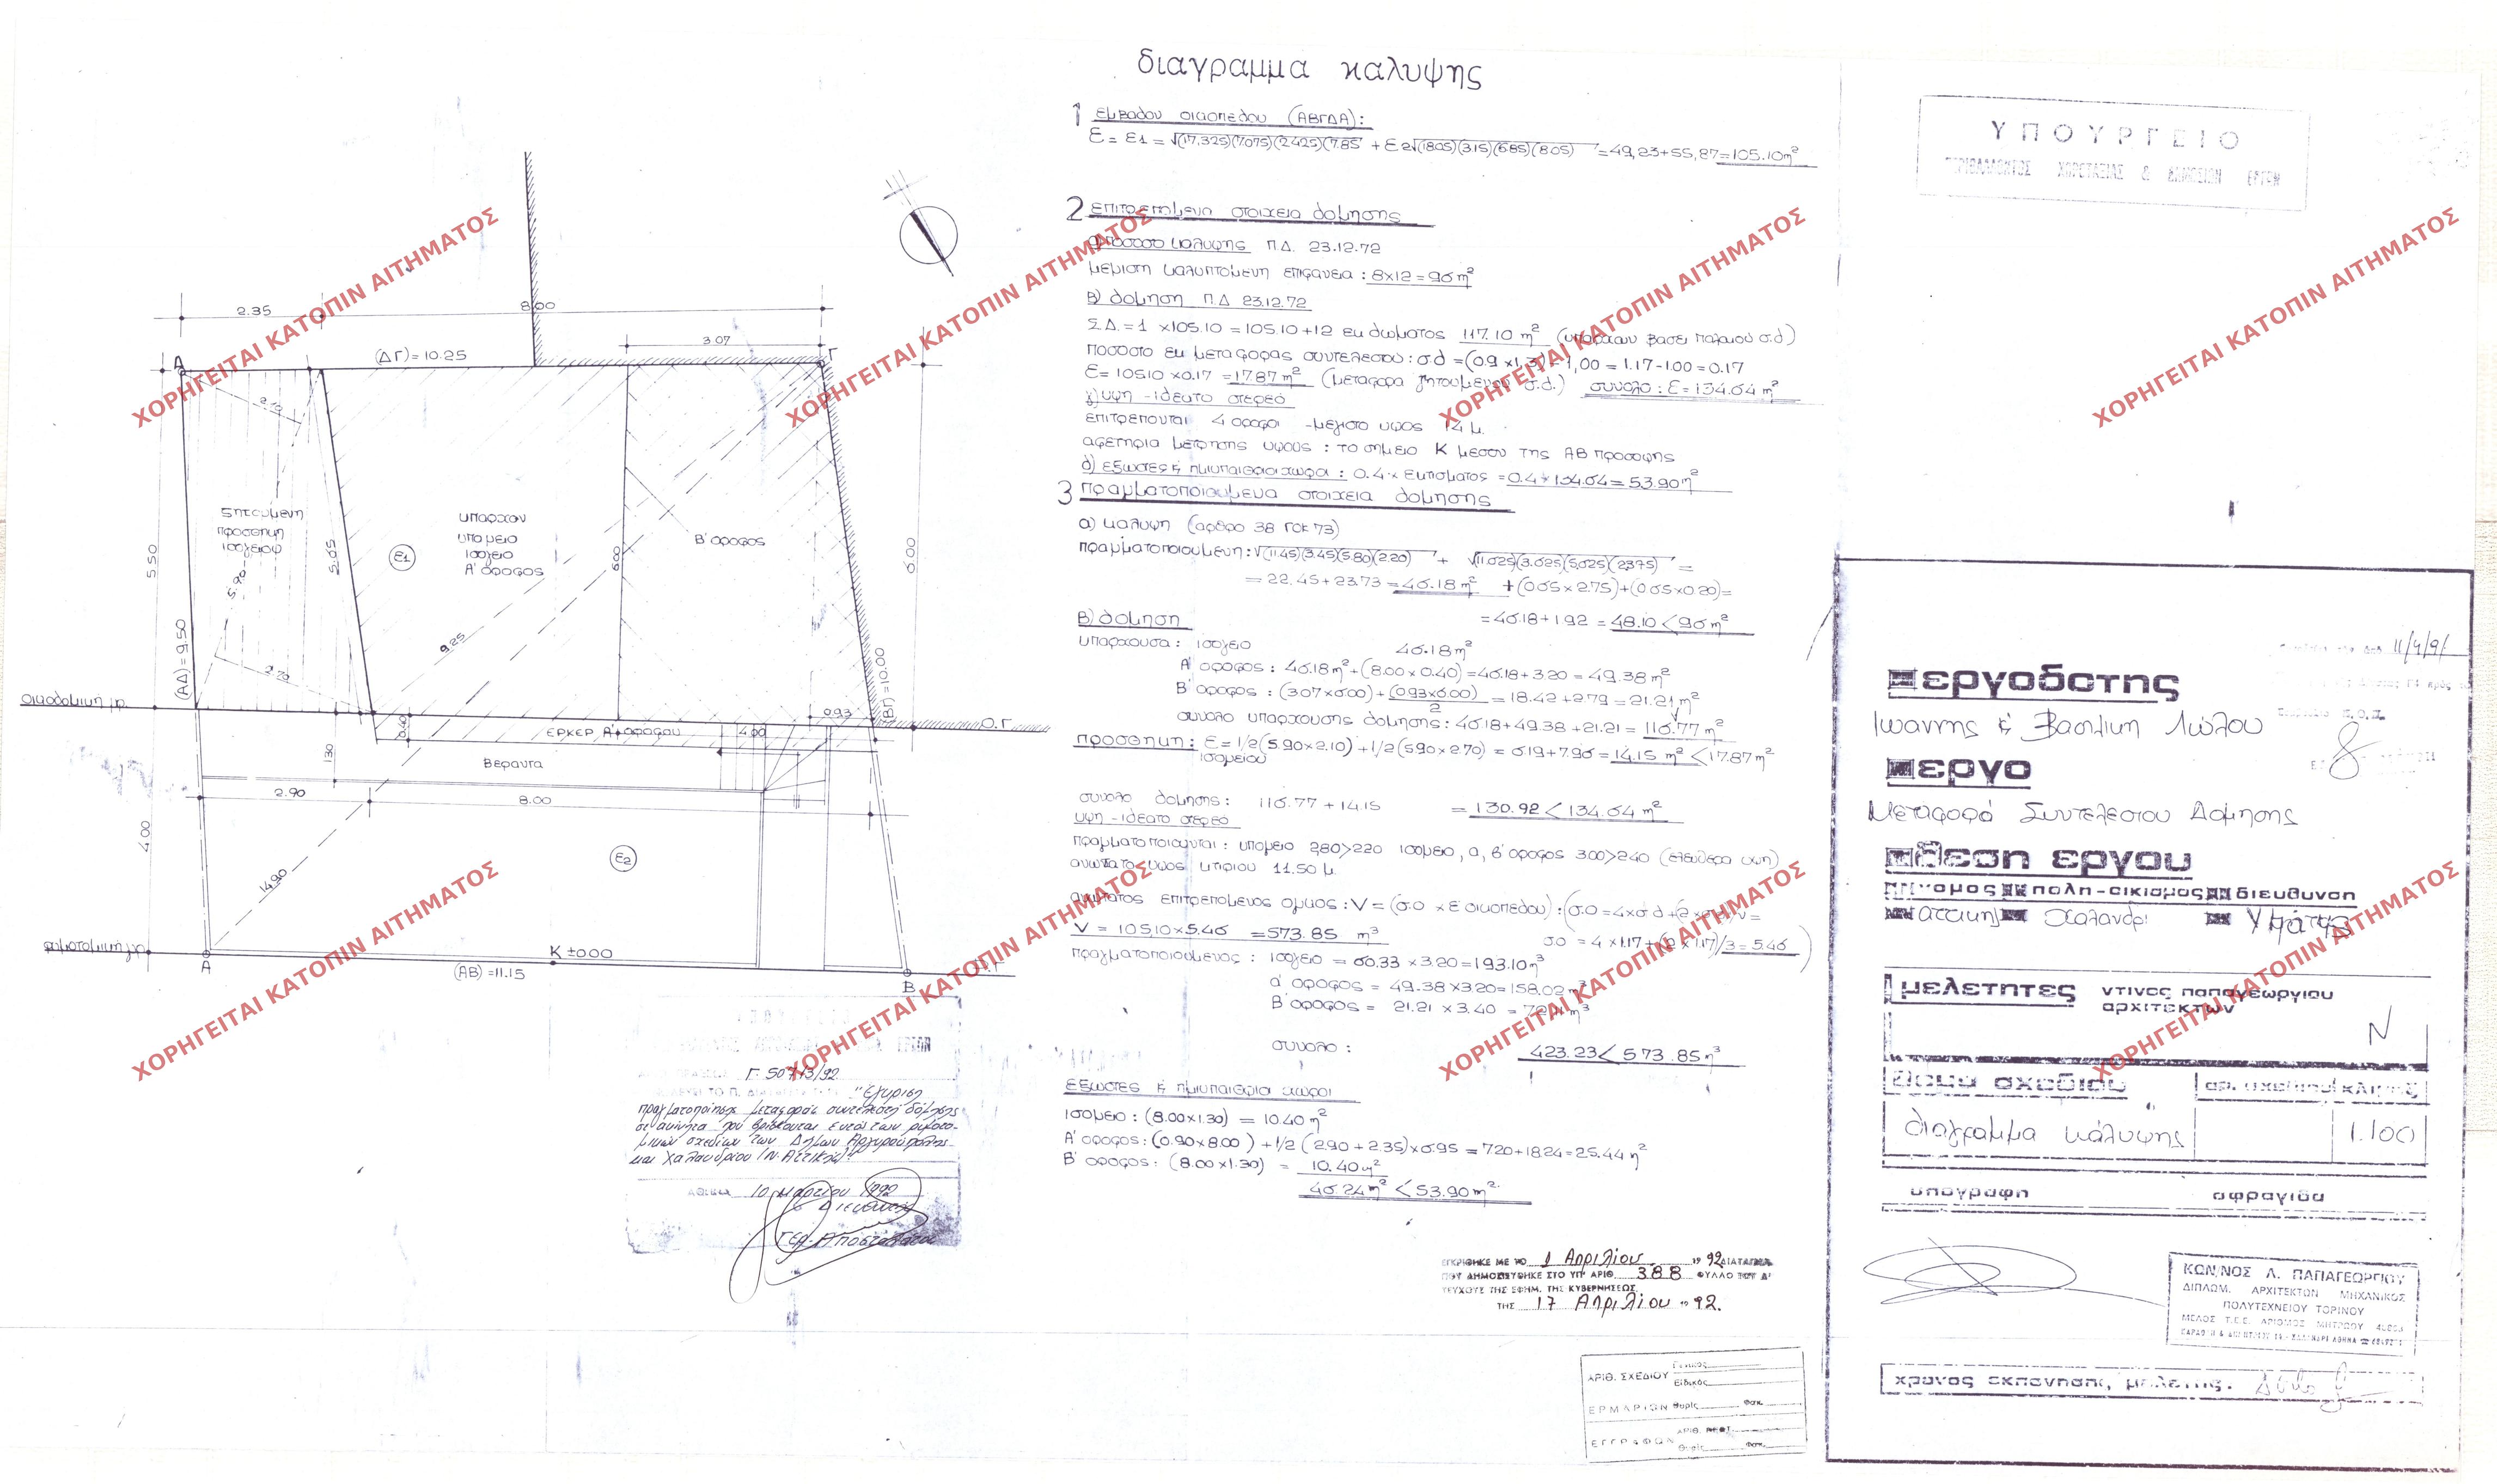 διαγραμμα καλυψης
1 εμβαδον οικοπεδου (ΑΒΓΔΑ):
Ε = ε1 = √(17,325)(7.075)(2.425)(7.85) + Ε2√(18.05)(3.15)(6.85)(8.05) = 49,23+55,87=105.10m²
2 επιτρεπομενα στοιχεια δομησης
α) ποσοσο καλυψης Π.Δ. 23.12.72
μεγιστη καλυπτομενη επιφανεια : 8x12 = 96m²
Β) δομηση Π.Δ 23.12.72
Σ.Δ. = 1 x105.10 = 105.10+12 εκ δωματος 117.10 m² (υπαρχων βασει παλαιού σ.δ)
ποσοστο εκ μεταφορας συντελεστού: σ.δ = (0.9 x1,3) - 1,00 = 1.17-1.00 = 0.17
Ε= 105.10 x0.17 = 17.87 m² (μεταφορα ζητουμενου σ.δ.) συνολο : Ε=134.64 m²
γ) υψη - ιδεατο στερεό
επιτρεπονται 4 οροφοι - μεγιστο υψος 14 μ.
αφετηρια μετρησης υψους : το σημειο Κ μεσου της ΑΒ προσοψης
δ) εξωστες & ημιυπαιθριοι χωροι : 0.4 x εκτισματος = 0.4 x 134.64 = 53.90m²
3 πραγματοποιουμενα στοιχεια δομησης
α) καλυψη (αρθρο 38 ΓΟΚ 73)
πραγματοποιουμενη: √(11.45)(3.45)(5.80)(2.20) + √(11.625)(3.625)(5.625)(2.375) =
= 22.45 + 23.73 = 46.18 m² + (0.65 x 2.75)+(0.65x0.20)=
= 46.18 + 1.92 = 48.10 < 96 m²
Β) δομηση
υπαρχουσα: ισογειο 46.18 m²
Α' οροφος : 46.18 m² + (8.00 x 0.40) = 46.18 + 3.20 = 49.38 m²
Β' οροφος : (3.07 x6.00) + (0.93x6.00)/2 = 18.42 + 2.79 = 21.21 m²
συνολο υπαρχουσης δομησης: 46.18 + 49.38 + 21.21 = 116.77 m²
προσθηκη: Ε = 1/2 (5.90 x 2.10) + 1/2 (5.90 x 2.70) = 6.19 + 7.96 = 14.15 m² < 17.87 m²
ισογειου
συνολο δομησης: 116.77 + 14.15 = 130.92 < 134.64 m²
υψη - ιδεατο στερεό
πραγματοποιουνται : υπογειο 2,80>2.20 ισογειο, α, β' οροφος 3.00>2.40 (ελευθερα υψη)
ανωτατο υψος κτιριου 11.50 μ.
ανωτατος επιτρεπομενος ογκος: V = (σ.ο x Ε οικοπεδου) : (σ.ο = 4xσ.δ + (2 x σ.δ)/ν =
V = 105.10 x 5.46 = 573.85 m³ σ.ο = 4 x1.17 + (2 x 1.17)/3 = 5.46
πραγματοποιουμενος : ισογειο = 60.33 x 3.20 = 193.10 m³
α' οροφος = 49.38 x 3.20 = 158.02 m³
Β' οροφος = 21.21 x 3.40 = 72.11 m³
συνολο : 423.23 < 573.85 m³
εξωστες & ημιυπαιθριοι χωροι
ισογειο : (8.00 x1.30) = 10.40 m²
Α' οροφος: (0.90 x 8.00) + 1/2 (2.90 + 2.35) x 6.95 = 7.20 + 18.24 = 25.44 m²
Β' οροφος: (8.00 x 1.30) = 10.40 m²
46.24 m² < 53.90 m²
2.35
8.00
(ΔΓ) = 10.25
3.07
Δ
Γ
2.10
ζητουμενη
προσθηκη
ισογειου
5.50
5.90
5.65
(ΑΔ) = 9.50
2.70
ε1
υπαρχον
υπογειο
ισογειο
Α' οροφος
9.25
6.00
Β' οροφος
6.00
(ΒΓ) = 10.00
οικοδομικη γρ.
Ο.Γ.
0.40
0.93
ΕΡΚΕΡ Α' οροφου
4.00
1.30
βεραντα
2.90
8.00
4.00
ε2
14.90
ρυμοτομικη γρ.
Α
Κ ±0.00
(ΑΒ) = 11.15
Β
Ρ.Γ
Γ. 5073/92
"Εγκριση
πραγματοποίησης μεταφοράς συντελεστή δόμησης
σε ακίνητα που βρίσκονται εντός των ρυμοτο-
μικών σχεδίων των Δήμων Αργυρούπολης
και Χαλανδρίου (Ν. Αττικής)"
ΑΘΗΝΑ 10 Μαρτίου 1992
ΕΓΚΡΙΘΗΚΕ ΜΕ ΤΟ 1 Απριλίου 1992 ΔΙΑΤΑΓΜΑ
ΠΟΥ ΔΗΜΟΣΙΕΥΘΗΚΕ ΣΤΟ ΥΠ' ΑΡΙΘ. 388 ΦΥΛΛΟ ΤΟΥ Δ'
ΤΕΥΧΟΥΣ ΤΗΣ ΕΦΗΜ. ΤΗΣ ΚΥΒΕΡΝΗΣΕΩΣ
ΤΗΣ 17 Απριλίου 1992.
ΑΡΙΘ. ΣΧΕΔΙΟΥ Γενικός
Ειδικός
ΕΡΜΑΡΙΟΝ Θυρίς Φακ.
ΕΓΓΡΑΦΩΝ ΑΡΙΘ. ΠΡΩΤ.
Θυρίς Φακ.
ΥΠΟΥΡΓΕΙΟ
ΠΕΡΙΒΑΛΛΟΝΤΟΣ ΧΩΡΟΤΑΞΙΑΣ & ΔΗΜΟΣΙΩΝ ΕΡΓΩΝ
11/4/91
εργοδοτης
Ιωαννης & Βασιλικη Λώλου
εργο
Μεταφορά Συντελεστου Δόμησης
θεση εργου
νομος πολη-οικισμος διευθυνση
αττικης Χαλανδρι
μελετητες ντινος παπαγεωργιου
αρχιτεκτων
N
θεμα σχεδιου αρ. σχεδιου κλιμαξ
διαγραμμα κάλυψης 1.100
υπογραφη σφραγιδα
ΚΩΝ/ΝΟΣ Λ. ΠΑΠΑΓΕΩΡΓΙΟΥ
ΔΙΠΛΩΜ. ΑΡΧΙΤΕΚΤΩΝ ΜΗΧΑΝΙΚΟΣ
ΠΟΛΥΤΕΧΝΕΙΟΥ ΤΟΡΙΝΟΥ
ΜΕΛΟΣ Τ.Ε.Ε. ΑΡΙΘΜΟΣ ΜΗΤΡΩΟΥ
χρονος εκπονησης μελετης.
ΧΟΡΗΓΕΙΤΑΙ ΚΑΤΟΠΙΝ ΑΙΤΗΜΑΤΟΣ
ΧΟΡΗΓΕΙΤΑΙ ΚΑΤΟΠΙΝ ΑΙΤΗΜΑΤΟΣ
ΧΟΡΗΓΕΙΤΑΙ ΚΑΤΟΠΙΝ ΑΙΤΗΜΑΤΟΣ
ΧΟΡΗΓΕΙΤΑΙ ΚΑΤΟΠΙΝ ΑΙΤΗΜΑΤΟΣ
ΧΟΡΗΓΕΙΤΑΙ ΚΑΤΟΠΙΝ ΑΙΤΗΜΑΤΟΣ
ΧΟΡΗΓΕΙΤΑΙ ΚΑΤΟΠΙΝ ΑΙΤΗΜΑΤΟΣ
ΧΟΡΗΓΕΙΤΑΙ ΚΑΤΟΠΙΝ ΑΙΤΗΜΑΤΟΣ
ΧΟΡΗΓΕΙΤΑΙ ΚΑΤΟΠΙΝ ΑΙΤΗΜΑΤΟΣ